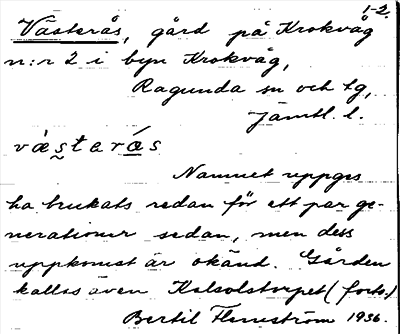 1-2.
Västerås, gård på Krokvåg
n:r 2 i byn Krokvåg,
Ragunda sn och tg,
Jämtl. l.
væ̀sterås
Namnet uppges
ha brukats redan för ett par ge-
nerationer sedan, men dess
uppkomst är okänd. Gården
kallas även (forts.)
Bertil 1936.